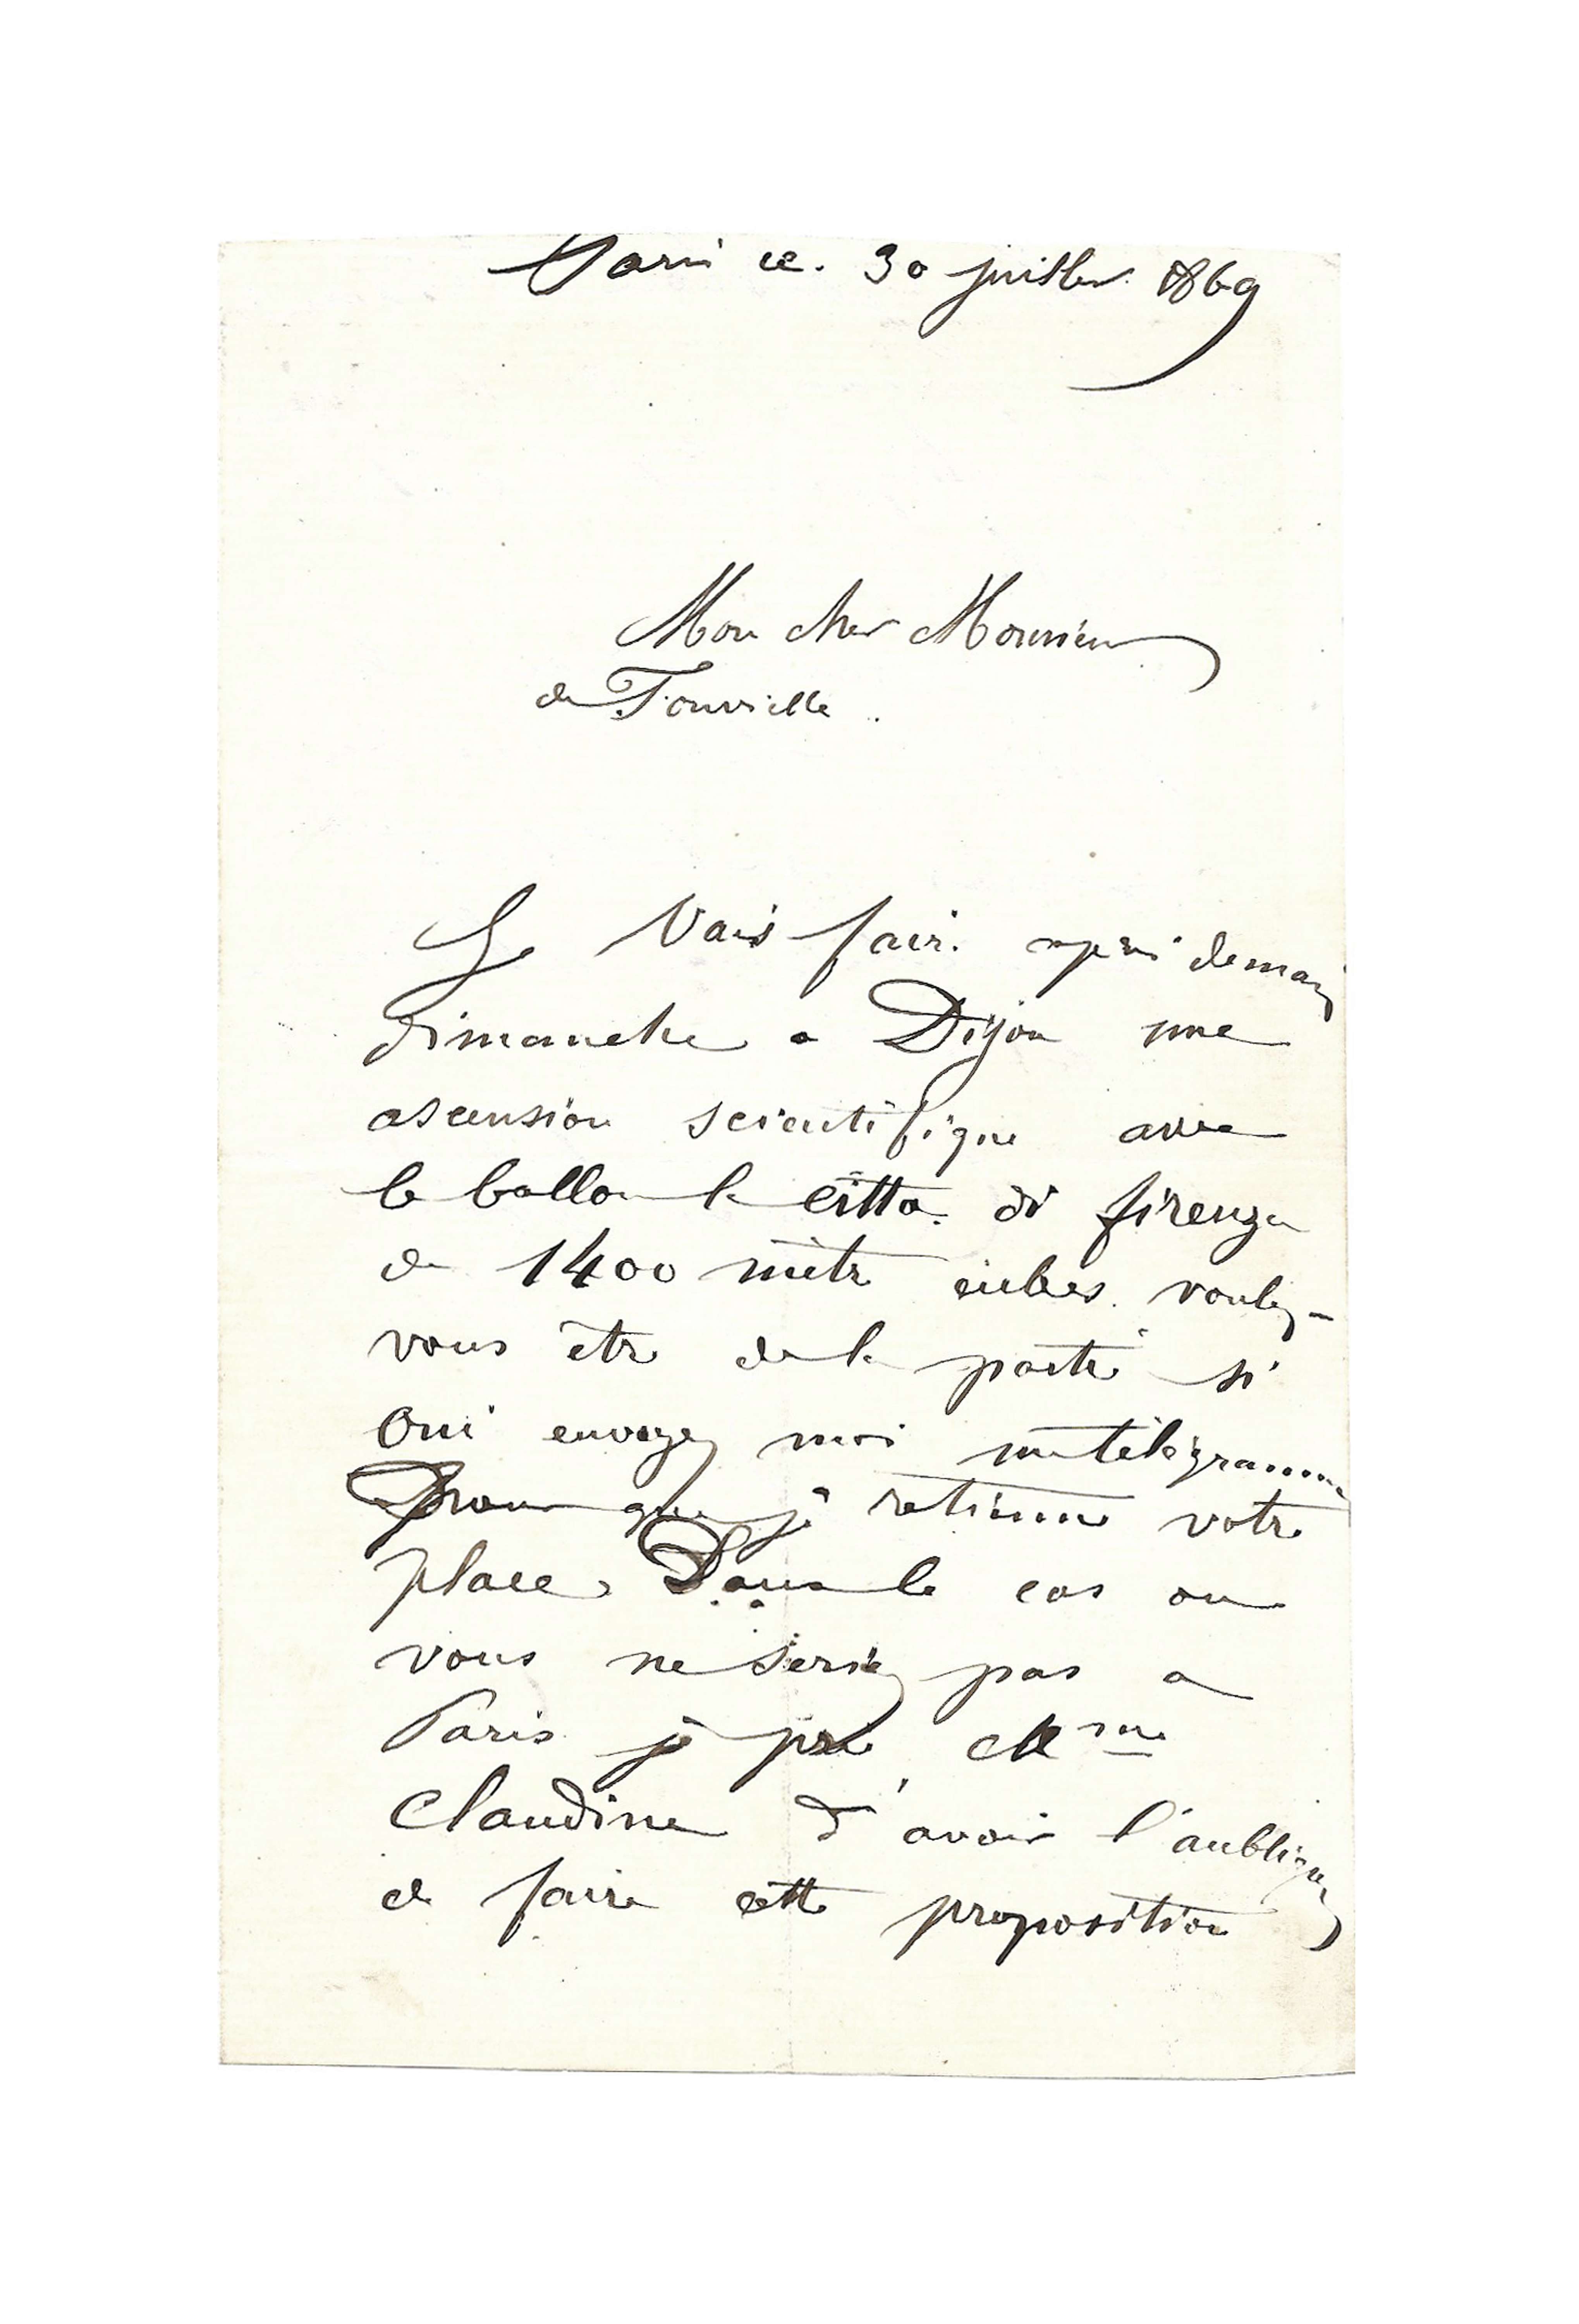 Paris ce. 30 juillet 1869
Mon cher Monsieur
de Fonvielle.
Je Vais faire après demain
dimanche a Dijon une
ascension scientifique avec
le ballon le citta di firenze
de 1400 mètre cubes. voulez-
vous être de la partie si
Oui envoyez moi un télégramme
pour que je retienne votre
place Dans le cas ou
vous ne seriez pas a
Paris je prie Mme
Claudine d'avoir l'aubligence
de faire cette proposition